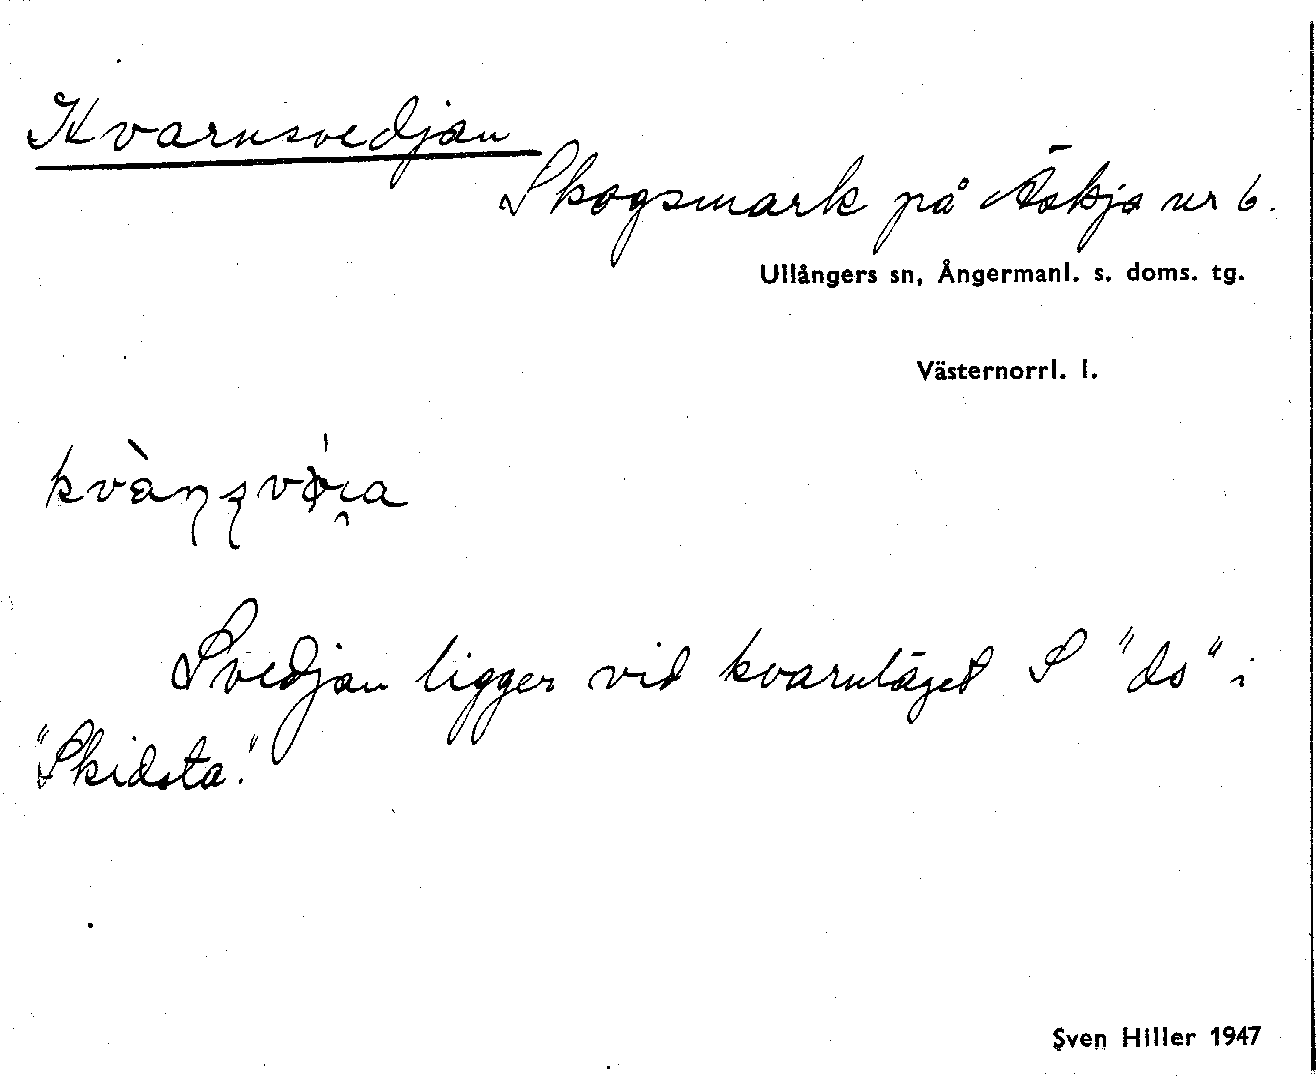 Kvarnsvedjan
Skogsmark på Äskja nr 6.
Ullångers sn, Ångermanl. s. doms. tg.
Västernorrl. l.
Svedjan ligger vid kvarnläget S "ds" i
"Skidsta."
Sven Hiller 1947